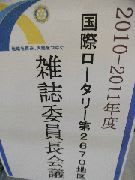 2010-2011年度
国際ロータリー第2670地区
雑誌委員長会議